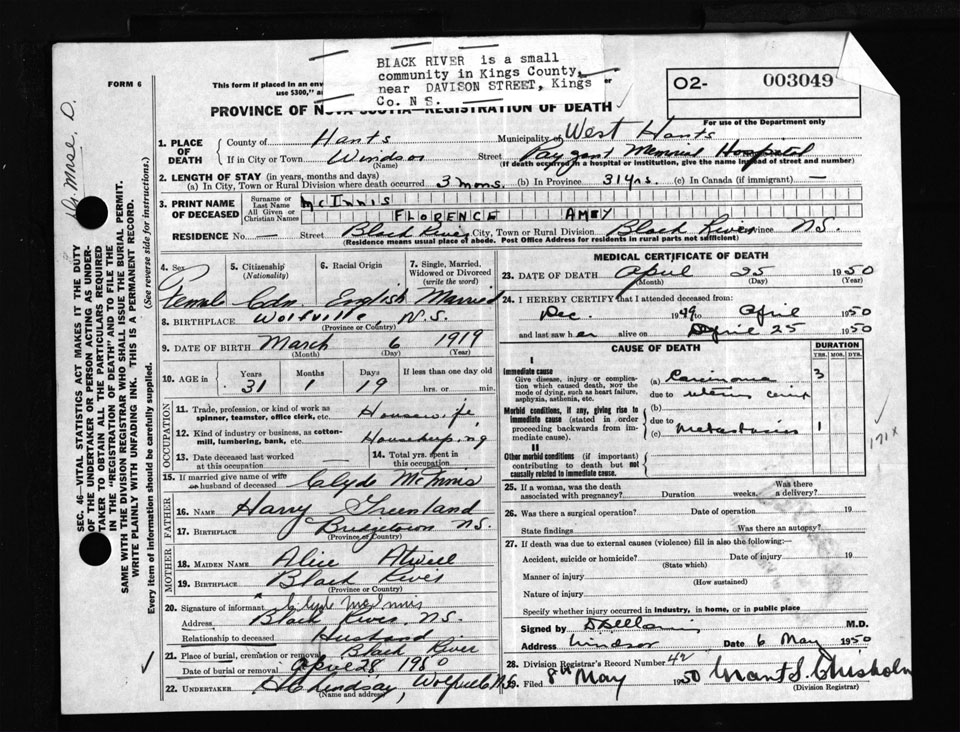 BLACK RIVER is a small
community in Kings County,
near DAVISON STREET, Kings
Co. N S.
FORM 6
This form if placed in an env
use $300," au
PROVINCE OF NOVA SCOTIA—REGISTRATION OF DEATH
O2- 003049
For use of the Department only
SEC. 46—VITAL STATISTICS ACT MAKES IT THE DUTY
OF THE UNDERTAKER OR PERSON ACTING AS UNDER-
TAKER TO OBTAIN ALL THE PARTICULARS REQUIRED
IN THE "REGISTRATION OF DEATH" AND TO FILE THE
SAME WITH THE DIVISION REGISTRAR WHO SHALL ISSUE THE BURIAL PERMIT.
WRITE PLAINLY WITH UNFADING INK. THIS IS A PERMANENT RECORD.
Every item of information should be carefully supplied. (See reverse side for instructions.)
1. PLACE OF DEATH
County of Hants Municipality of West Hants
If in City or Town Windsor Street Payzant Memorial Hospital
(Name) (If death occurred in a hospital or institution, give the name instead of street and number)
2. LENGTH OF STAY (in years, months and days)
(a) In City, Town or Rural Division where death occurred 3 mons. (b) In Province 31 yrs. (c) In Canada (if immigrant) —
3. PRINT NAME OF DECEASED
Surname or Last Name McINNIS
All Given or Christian Names FLORENCE AMEY
RESIDENCE No. — Street Black River City, Town or Rural Division Black River Province N.S.
(Residence means usual place of abode. Post Office Address for residents in rural parts not sufficient)
4. Sex 5. Citizenship (Nationality) 6. Racial Origin 7. Single, Married, Widowed or Divorced (write the word)
Female Cdn English Married
8. BIRTHPLACE Wolfville, N.S.
(Province or Country)
9. DATE OF BIRTH March 6 1919
(Month) (Day) (Year)
10. AGE in Years Months Days If less than one day old
31 1 19 hrs. or min.
11. Trade, profession, or kind of work as
spinner, teamster, office clerk, etc. Housewife
12. Kind of industry or business, as cotton-
mill, lumbering, bank, etc. Housekeeping
13. Date deceased last worked
at this occupation
14. Total yrs. spent in
this occupation
15. If married give name of wife
or husband of deceased Clyde McInnis
FATHER
16. NAME Harry Greenland
17. BIRTHPLACE Bridgetown N.S.
(Province or Country)
MOTHER
18. MAIDEN NAME Alice Atwell
19. BIRTHPLACE Black River
(Province or Country)
20. Signature of informant Clyde McInnis
Address Black River N.S.
Relationship to deceased Husband
21. Place of burial, cremation or removal Black River
Date of burial or removal April 28 1950
22. UNDERTAKER H C Lindsay, Wolfville N.S.
(Name and address)
MEDICAL CERTIFICATE OF DEATH
23. DATE OF DEATH April 25 1950
(Month) (Day) (Year)
24. I HEREBY CERTIFY that I attended deceased from:
Dec. 1949 to April 1950
and last saw her alive on April 25 1950
CAUSE OF DEATH DURATION
YRS. MOS. DYS.
I
Immediate cause
Give disease, injury or complica-
tion which caused death, not the
mode of dying, such as heart failure,
asphyxia, asthenia, etc.
(a) Carcinoma 3
due to uterus cervix
Morbid conditions, if any, giving rise to
immediate cause (stated in order
proceeding backwards from im-
mediate cause).
(b)
due to
(c) Metastasis 1
171x
II
Other morbid conditions (if important)
contributing to death but not
causally related to immediate cause.
25. If a woman, was the death
associated with pregnancy? Duration weeks. Was there
a delivery?
26. Was there a surgical operation? Date of operation 19
State findings Was there an autopsy?
27. If death was due to external causes (violence) fill in also the following:—
Accident, suicide or homicide? Date of injury 19
(State which)
Manner of injury
(How sustained)
Nature of injury
Specify whether injury occurred in industry, in home, or in public place
Signed by M.D.
Address Windsor Date 6 May 1950
28. Division Registrar's Record Number 42
29. Filed 8th May 1950 Grant S. Chisholm
(Division Registrar)